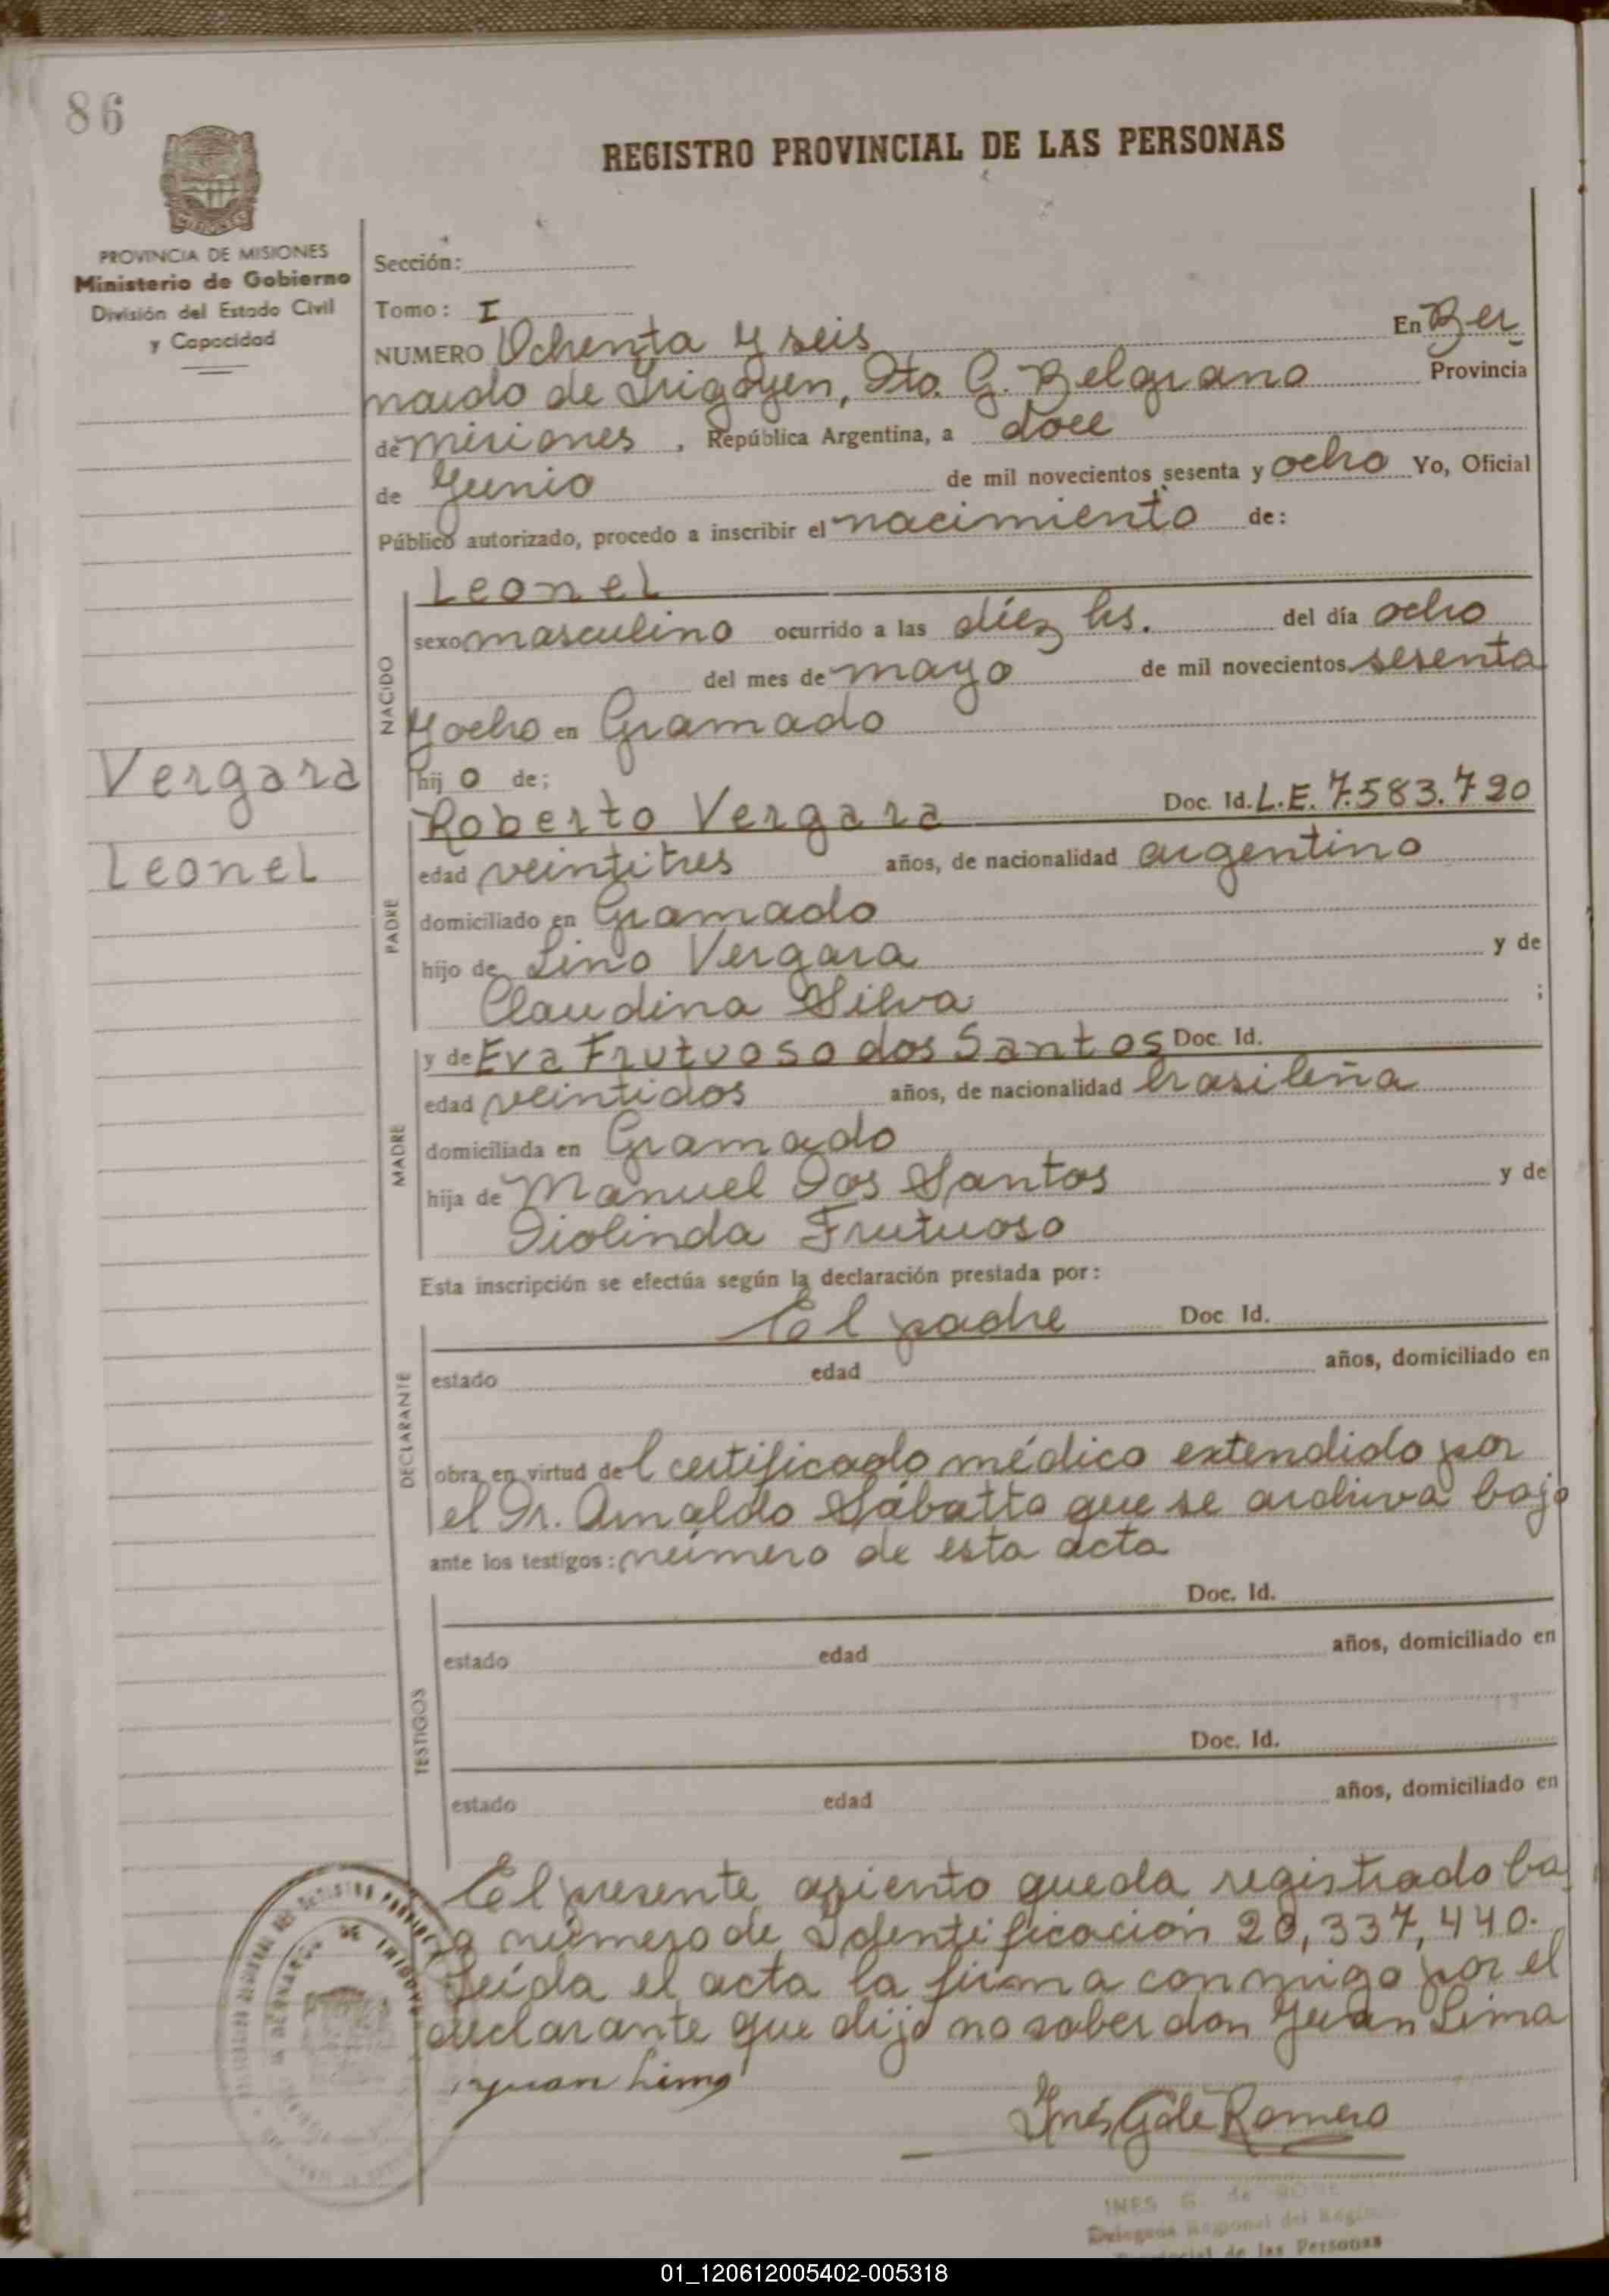 86
REGISTRO PROVINCIAL DE LAS PERSONAS
MISIONES
PROVINCIA DE MISIONES
Ministerio de Gobierno
División del Estado Civil
y Capacidad
Sección:
Tomo: I
NUMERO Ochenta y seis En Ber
nardo de Irigoyen, Dto. G. Belgrano Provincia
de misiones, República Argentina, a doce
de Junio de mil novecientos sesenta y ocho Yo, Oficial
Público autorizado, procedo a inscribir el nacimiento de:
NACIDO
Leonel
sexo masculino ocurrido a las diéz hs. del día ocho
del mes de mayo de mil novecientos sesenta
y ocho en Gramado
Vergara
Leonel
hij o de;
PADRE
Roberto Vergara Doc. Id. L.E. 7.583.720
edad veintitres años, de nacionalidad argentino
domiciliado en Gramado
hijo de Lino Vergara y de
Claudina Silva ;
MADRE
y de Eva Frutuoso dos Santos Doc. Id.
edad veintidos años, de nacionalidad brasileña
domiciliada en Gramado
hija de Manuel Dos Santos y de
Diolinda Frutuoso
Esta inscripción se efectúa según la declaración prestada por:
DECLARANTE
El padre Doc. Id.
estado edad años, domiciliado en
obra en virtud del certificado médico extendido por
el Dr. Arnaldo Sábatto que se archiva bajo
ante los testigos: número de esta acta
TESTIGOS
Doc. Id.
estado edad años, domiciliado en
Doc. Id.
estado edad años, domiciliado en
El presente asiento queda registrado ba
jo número de Identificación 20,337,440.
Leída el acta la firma conmigo por el
declarante que dijo no saber don Juan Lima
Juan Lima
Inés G de Romero
INES G. de
Delegada Regional del
de las Personas
01_120612005402-005318